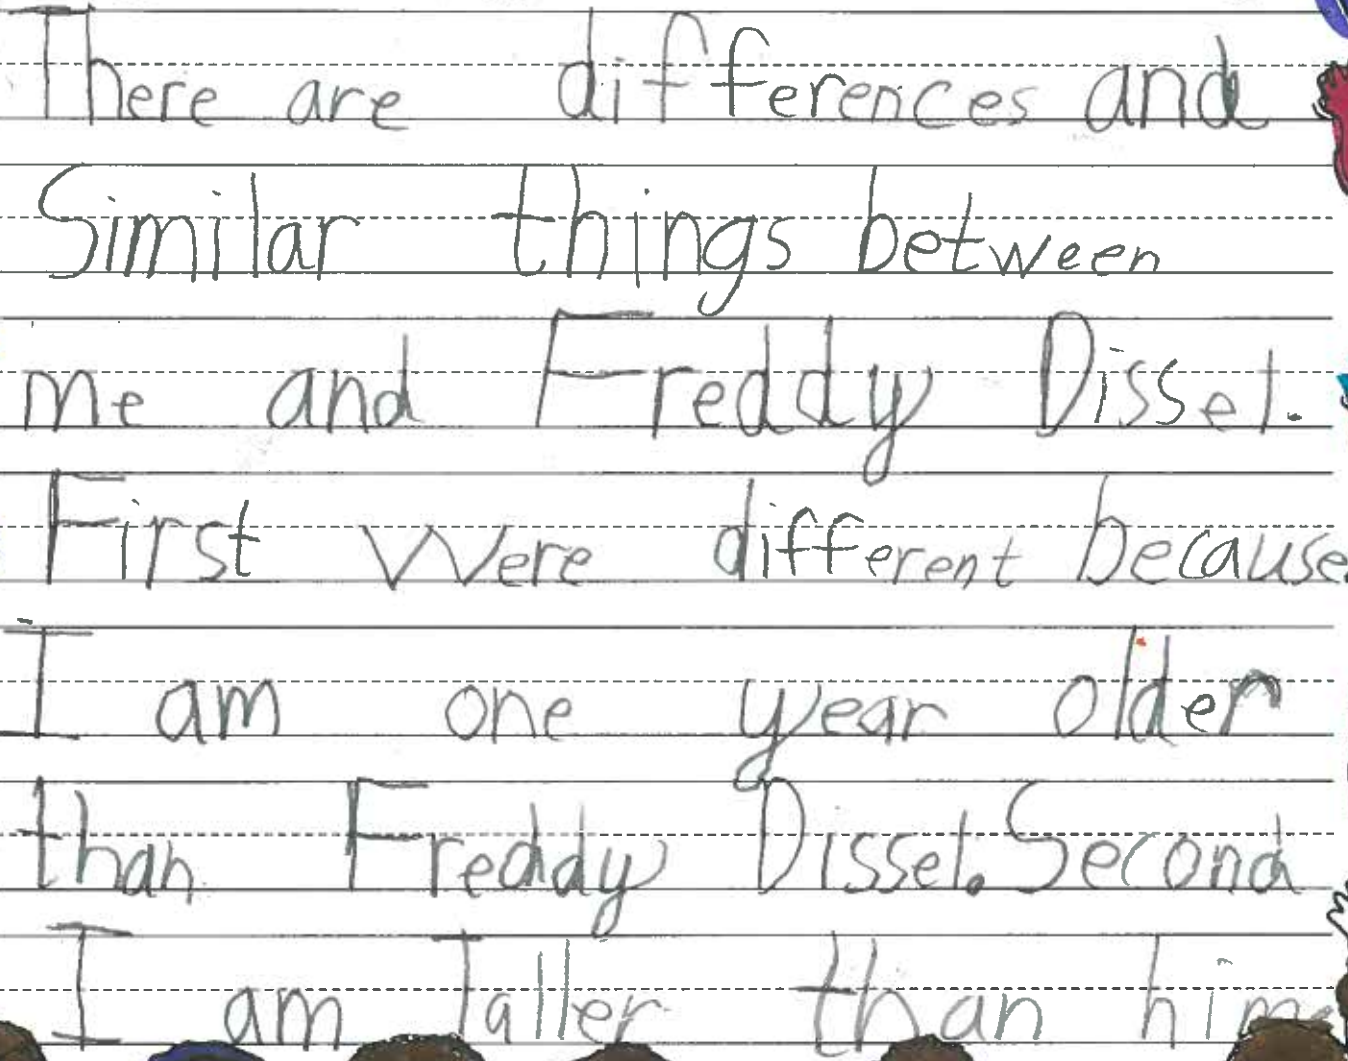 There are differences and
Similar things between
me and Freddy Dissel.
First were different because
I am one year older
than Freddy Dissel. Second
I am Taller than him